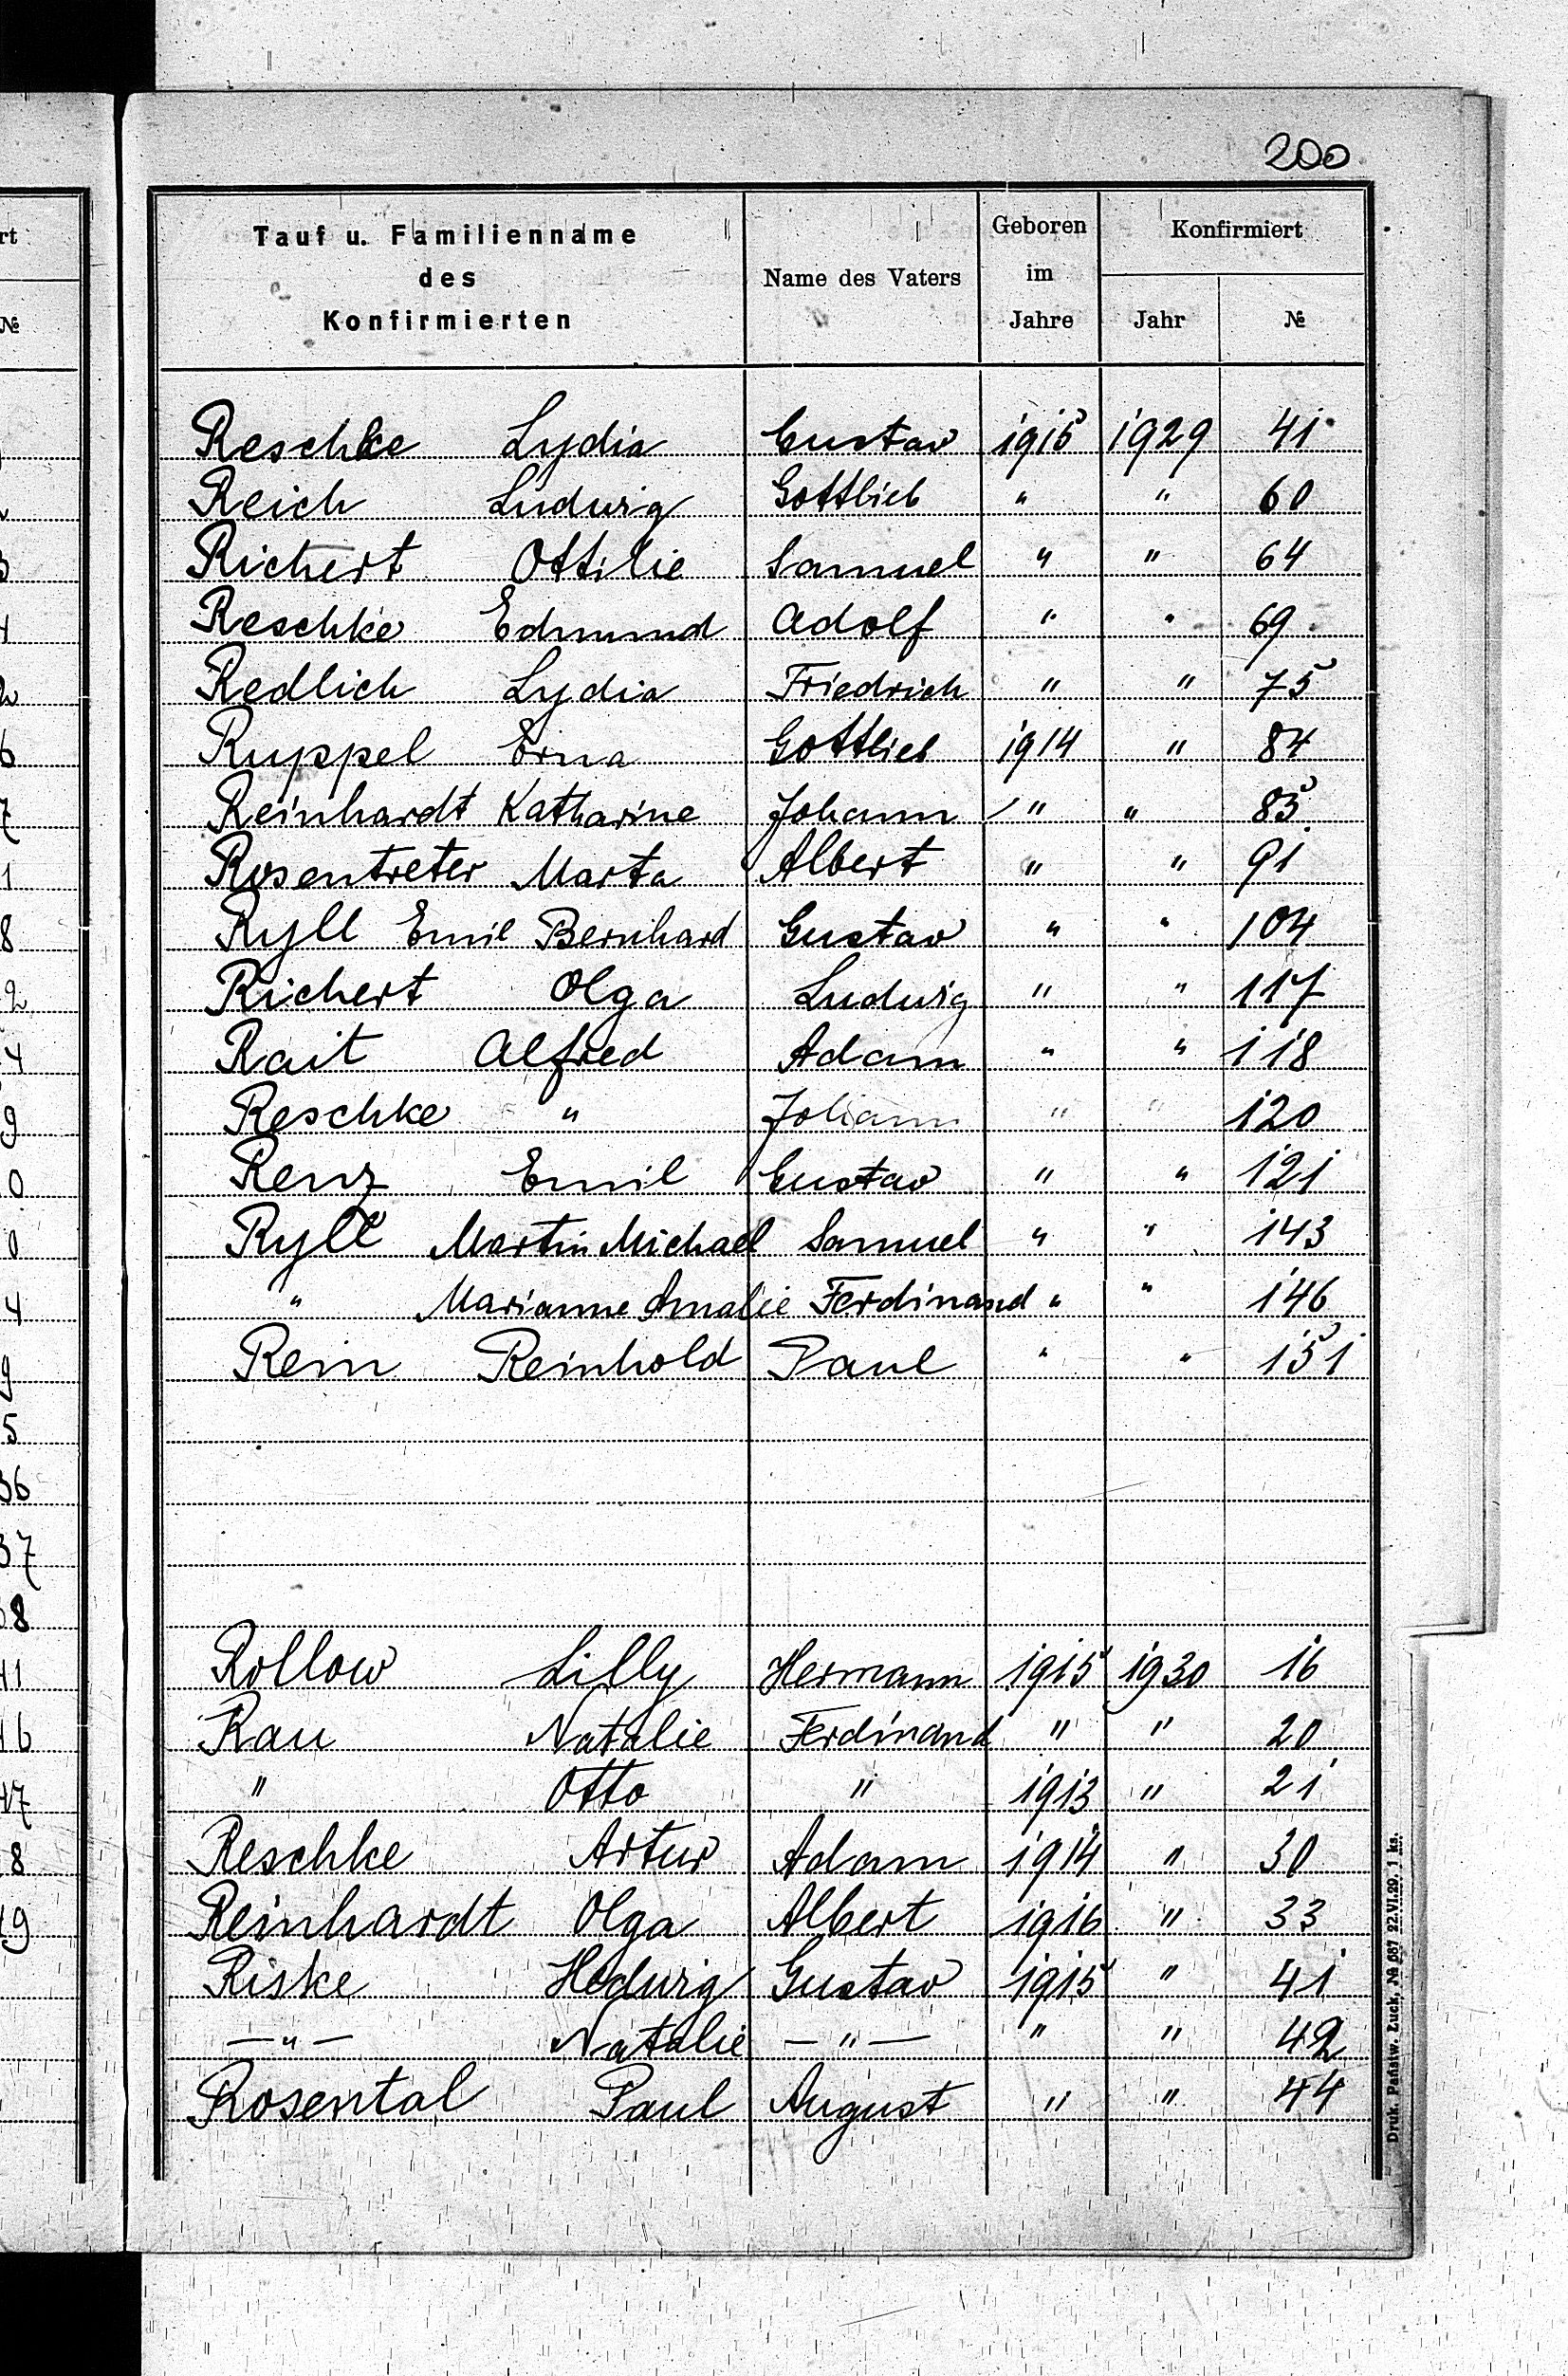 200
Tauf u. Familienname des Konfirmierten Name des Vaters Geboren im Jahre Konfirmiert Jahr №
Reschke Lydia Gustav 1915 1929 41
Reich Ludwig Gottlieb " " 60
Richert Ottilie Samuel " " 64
Reschke Edmund Adolf " " 69
Redlich Lydia Friedrich " " 75
Ruppel Erna Gottlieb 1914 " 84
Reinhardt Katharine Johann " " 85
Rosentreter Marta Albert " " 91
Ryll Emil Bernhard Gustav " " 104
Richert Olga Ludwig " " 117
Rait Alfred Adam " " 118
Reschke " Johann " " 120
Renz Emil Gustav " " 121
Ryll Martin Michael Samuel " " 143
" Marianne Amalie Ferdinand " " 146
Rein Reinhold Paul " " 151
Rollow Lilly Hermann 1915 1930 16
Rau Natalie Ferdinand " " 20
" Otto " 1913 " 21
Reschke Artur Adam 1914 " 30
Reinhardt Olga Albert 1916 " 33
Riske Hedwig Gustav 1915 " 41
—"— Natalie —"— " " 42
Rosental Paul August " " 44
Druk. Państw. Łuck, № 687 22.VI.29. 1 ks.